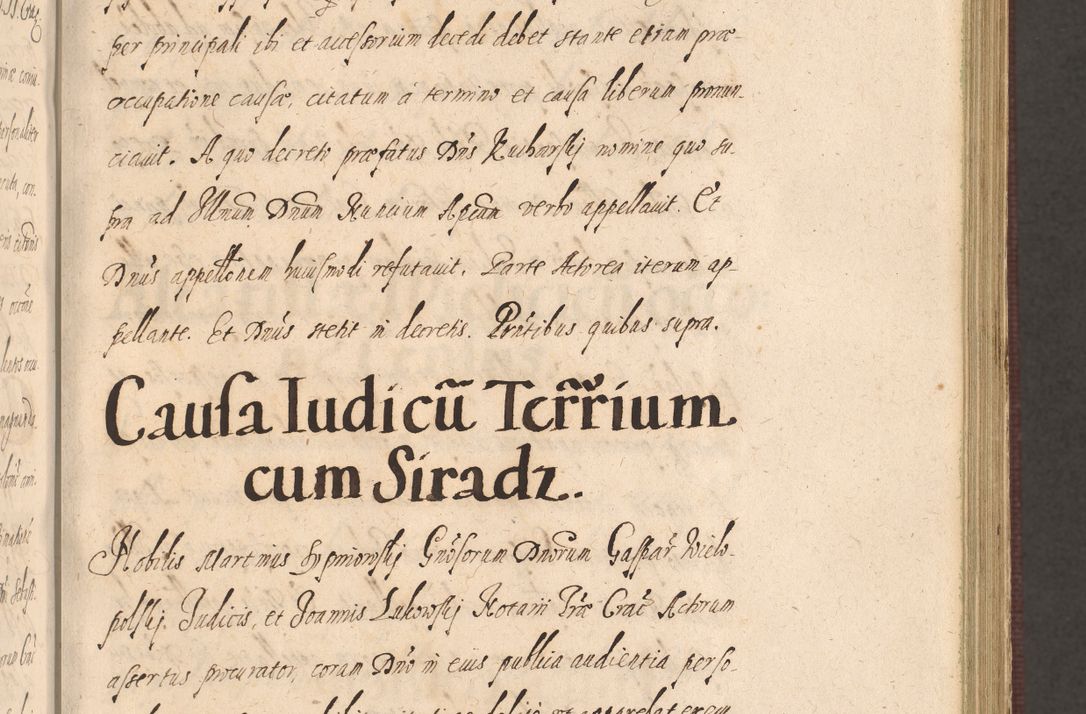 per principali ibi et accessorium decedi debet stante etiam præ-
occupatione causæ, citatum à termino et causa liberum pronun-
ciauit. A quo decreto præfatus Dns Kucharskj nomine quo su-
pra ad Illmum Dnum Nuncium Aplcum verbo appellauit. Et
Dnus appellonem huiusmodi refutauit. Parte Actorea iterum ap-
pellante. Et Dnus stetit in decretis. Prntibus quibus supra.
Causa Iudicũ Terrium
cum Siradz.
Nobilis Martinus Gnosorum Dnorum Gaspar Wielo-
polskj Judicis, et Joannis Lukowskj Notarii Træ Crac Actorum
assertus procurator, coram Dno in eius publica audientia perso-